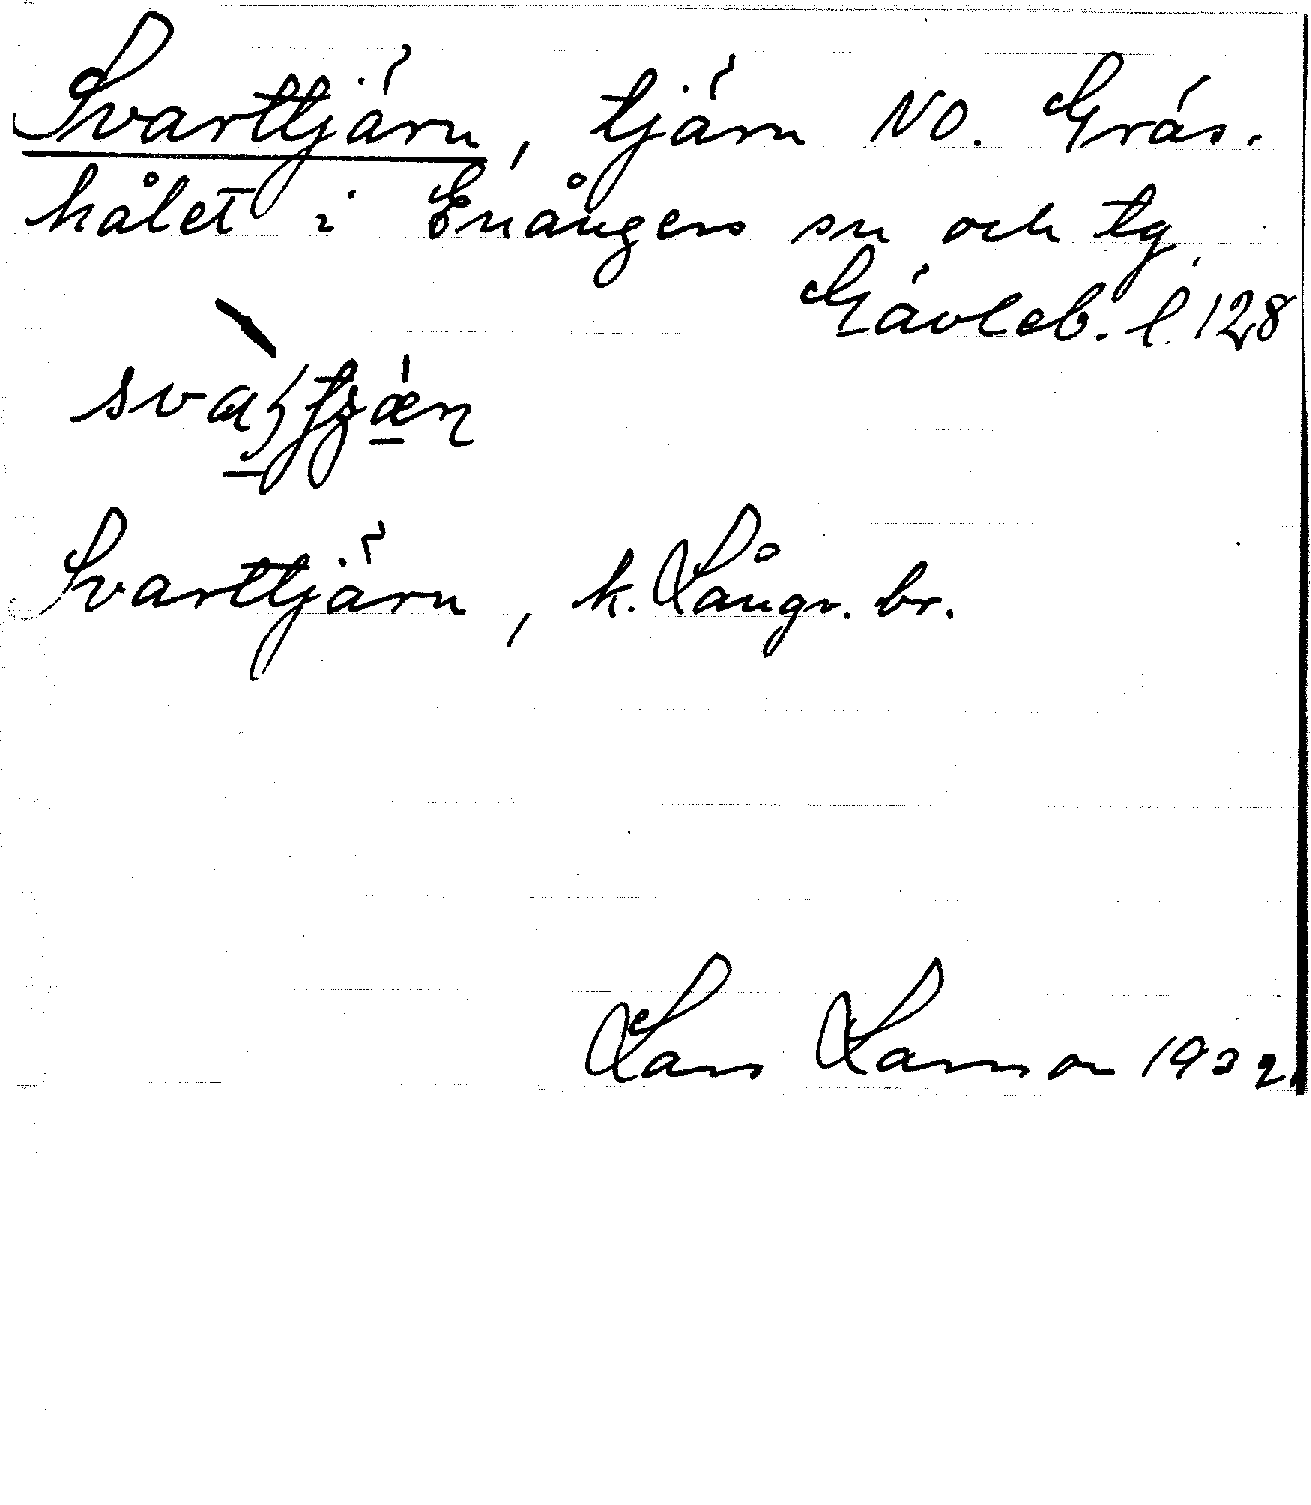 Svarttjärn, tjärn NO. Gräs-
hålet i Enångers sn och tg
Gävleb. l. 128
Svarttjärn, k. Långv. br.
Lars Larsson 1932.